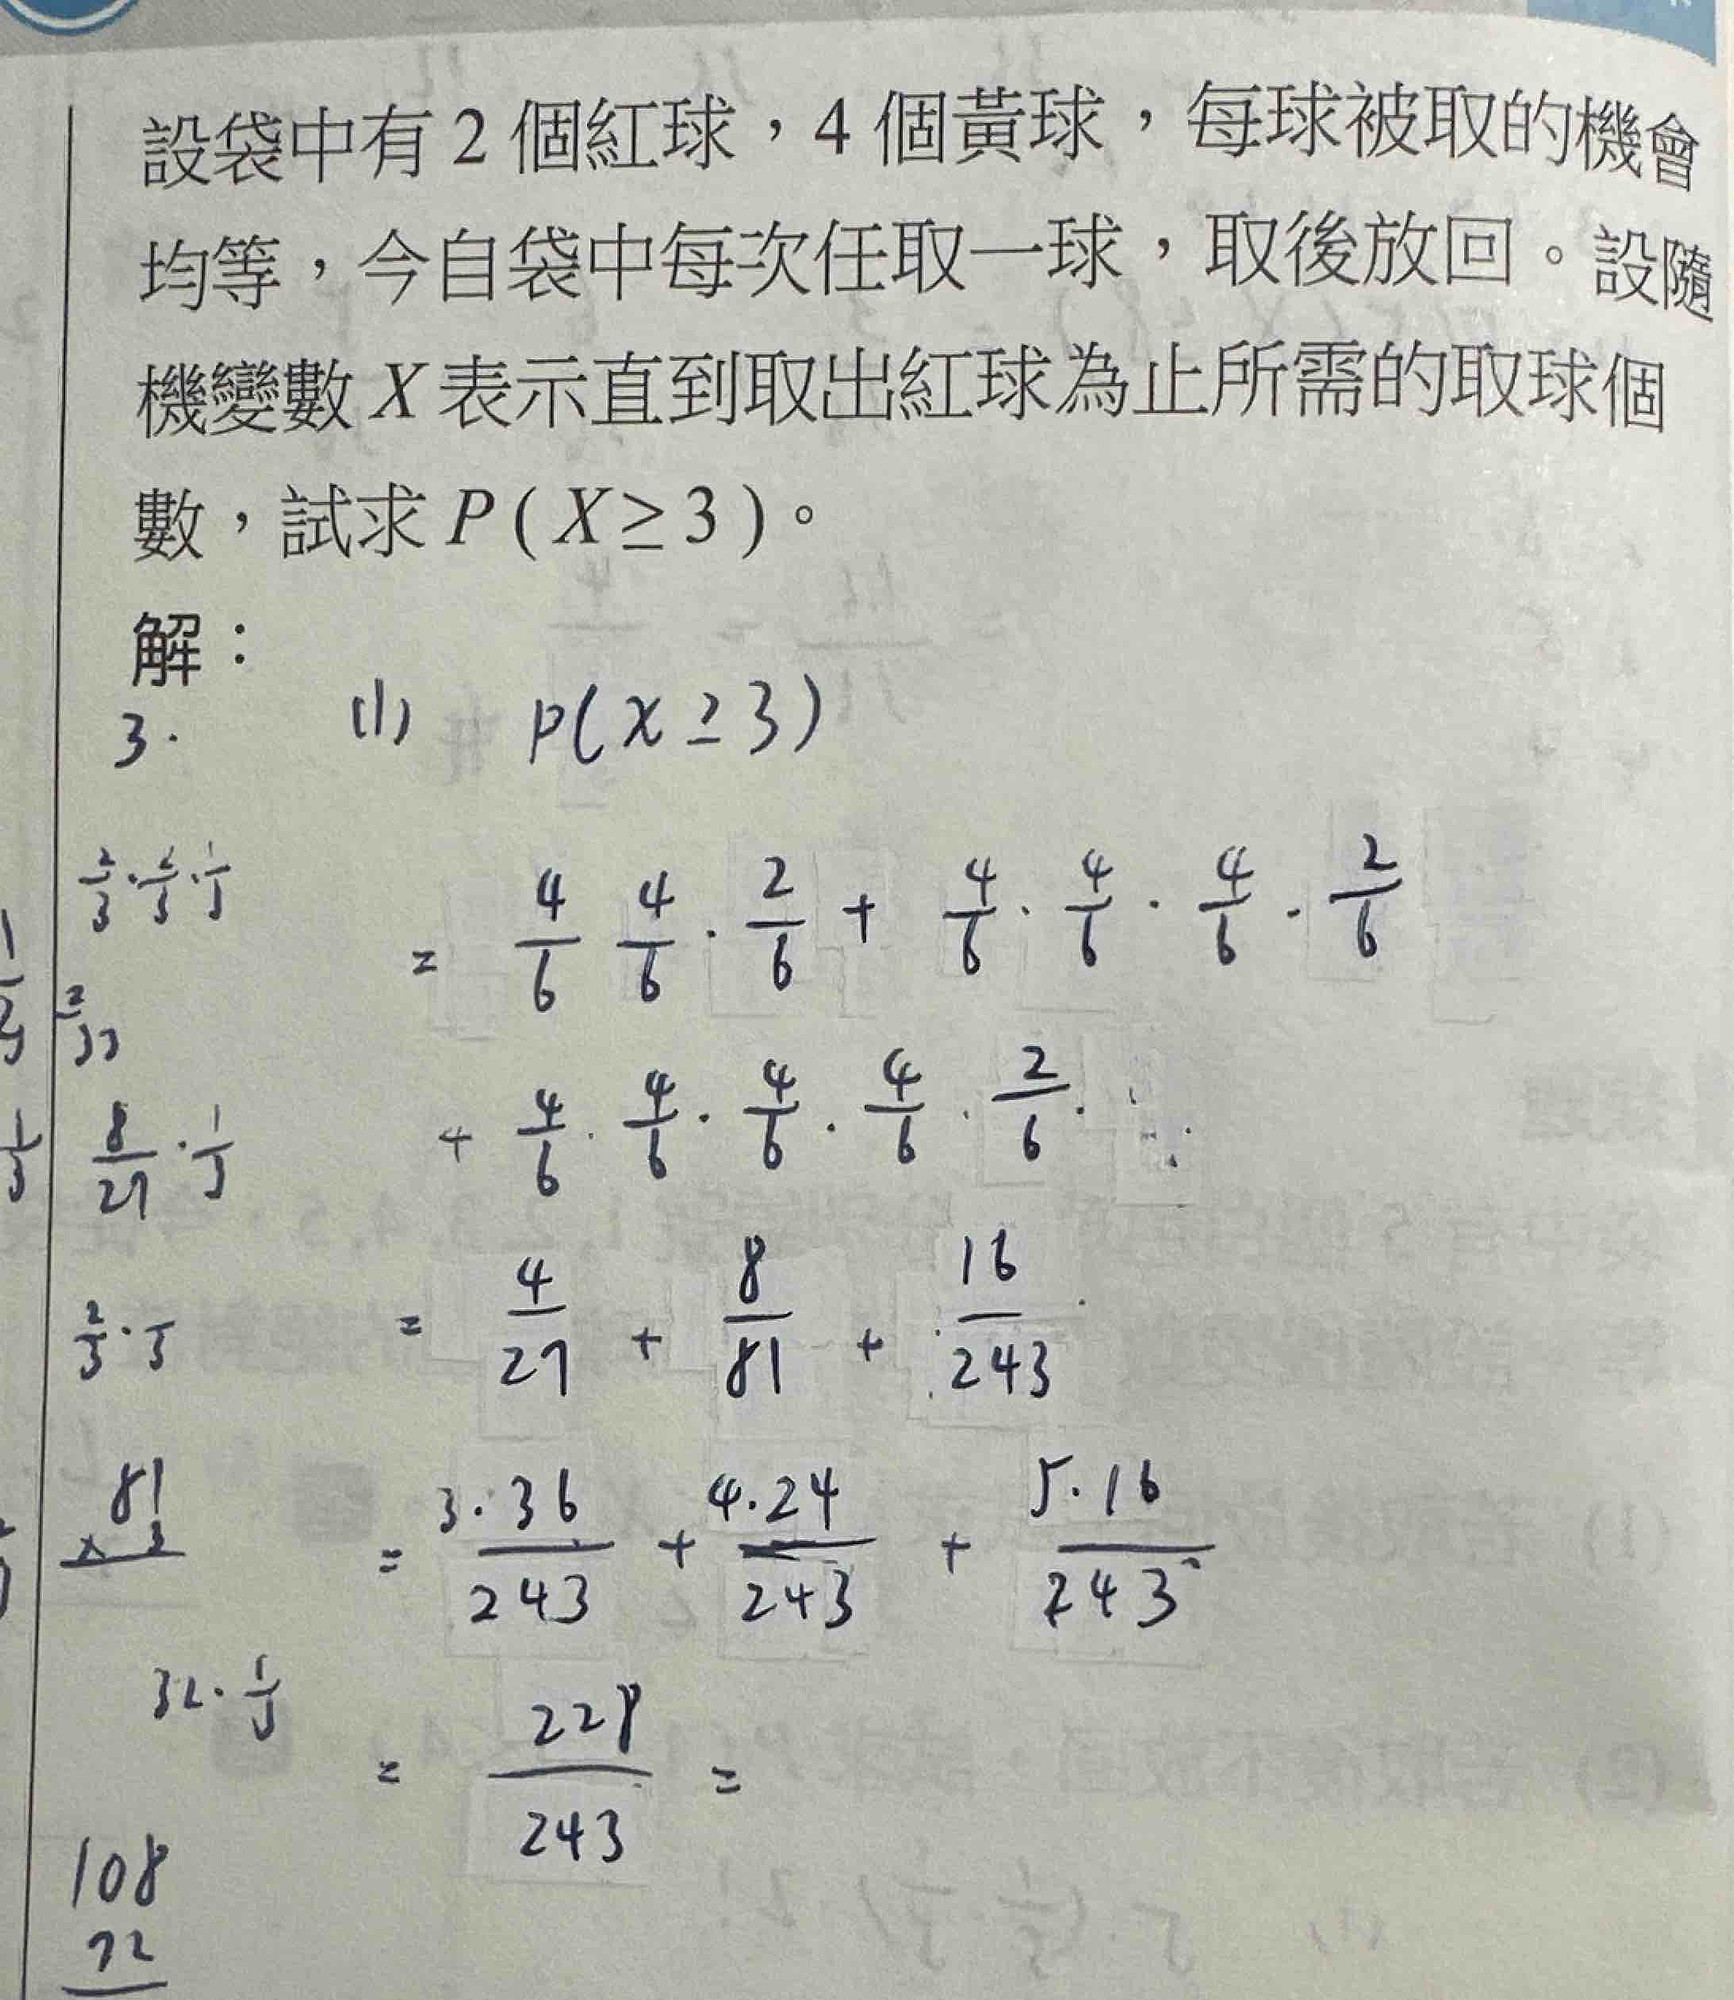 設袋中有 2 個紅球，4 個黃球，每球被取的機會
均等，今自袋中每次任取一球，取後放回。設隨
機變數 X 表示直到取出紅球為止所需的取球個
數，試求 P ( X ≥ 3 )。
解：
3. (1) P(x ≥ 3)
2/3 · 2/3 · 1/3
= 4/6 4/6 · 2/6 + 4/6 · 4/6 · 4/6 · 2/6
+ 4/6 · 4/6 · 4/6 · 4/6 · 2/6 · · ·
8/27 · 1/3
= 4/27 + 8/81 + 16/243
= 3·36/243 + 4·24/243 + 5·16/243
81
× 3
32 · 1/3
= 228/243 =
108
72